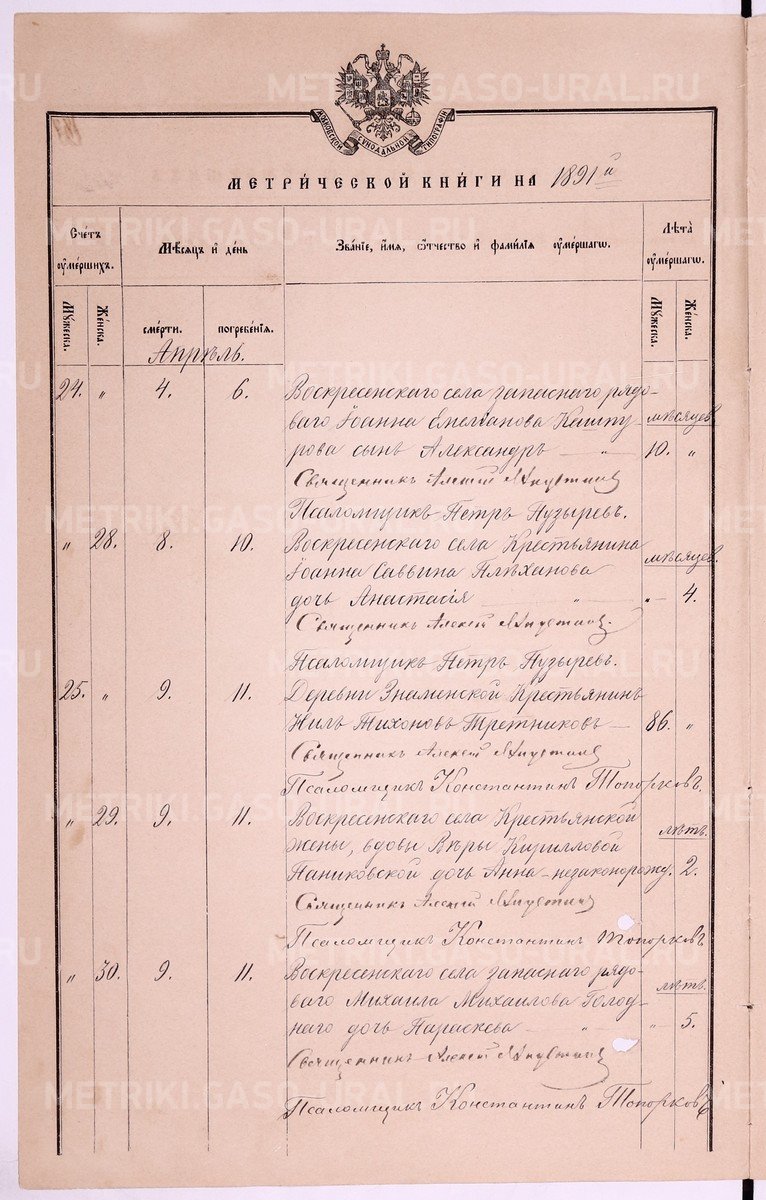 МОСКОВСКОЙ СѴНОДАЛЬНОЙ ТИПОГРАФІИ
МЕТРИ́ЧЕСКОЙ КНИ́ГИ НА 1891й
Сче́тъ ᲂу҆ме́ршихъ.
Мѣ́сяцъ и҆ де́нь
Зва́ніе, и҆́мя, ѻ҆́тчество и҆ фами́лія ᲂу҆ме́ршагѡ.
Лѣ́та ᲂу҆ме́ршагѡ.
Мꙋ́жеска.
Же́нска.
сме́рти.
погребе́нія.
Мꙋ́жеска.
Же́нска.
Апрѣль.
24. " 4. 6. Воскресенскаго села запаснаго рядо-
ваго Іоанна Емельанова Кашпу- мѣсяцев
рова сынъ Александръ — " — 10. "
Священникъ Алексій
Псаломщикъ Петръ Пузыревъ.
" 28. 8. 10. Воскресенскаго села Крестьянина мѣсяцев.
Іоанна Саввина Плѣханова
дочь Анастасія — " " 4.
Священникъ Алексій
Псаломщикъ Петръ Пузыревъ.
25. " 9. 11. Деревни Знаменской Крестьянинъ
Нилъ Тихоновъ Третниковъ — 86. "
Священникъ Алексій
Псаломщикъ Константинъ Топорковъ.
" 29. 9. 11. Воскресенскаго села Крестьянской
жены, вдовы Вѣры Кирилловой лѣтъ.
Паниковской дочь Анна-незаконорожд. 2.
Священникъ Алексій
Псаломщикъ Константинъ Топорковъ
" 30. 9. 11. Воскресенскаго села запаснаго рядо-
ваго Михаила Михаилова Голод- лѣтъ.
наго дочь Параскева — " — " 5.
Священникъ Алексій
Псаломщикъ Константинъ Топорковъ
METRIKI.GASO-URAL.RU